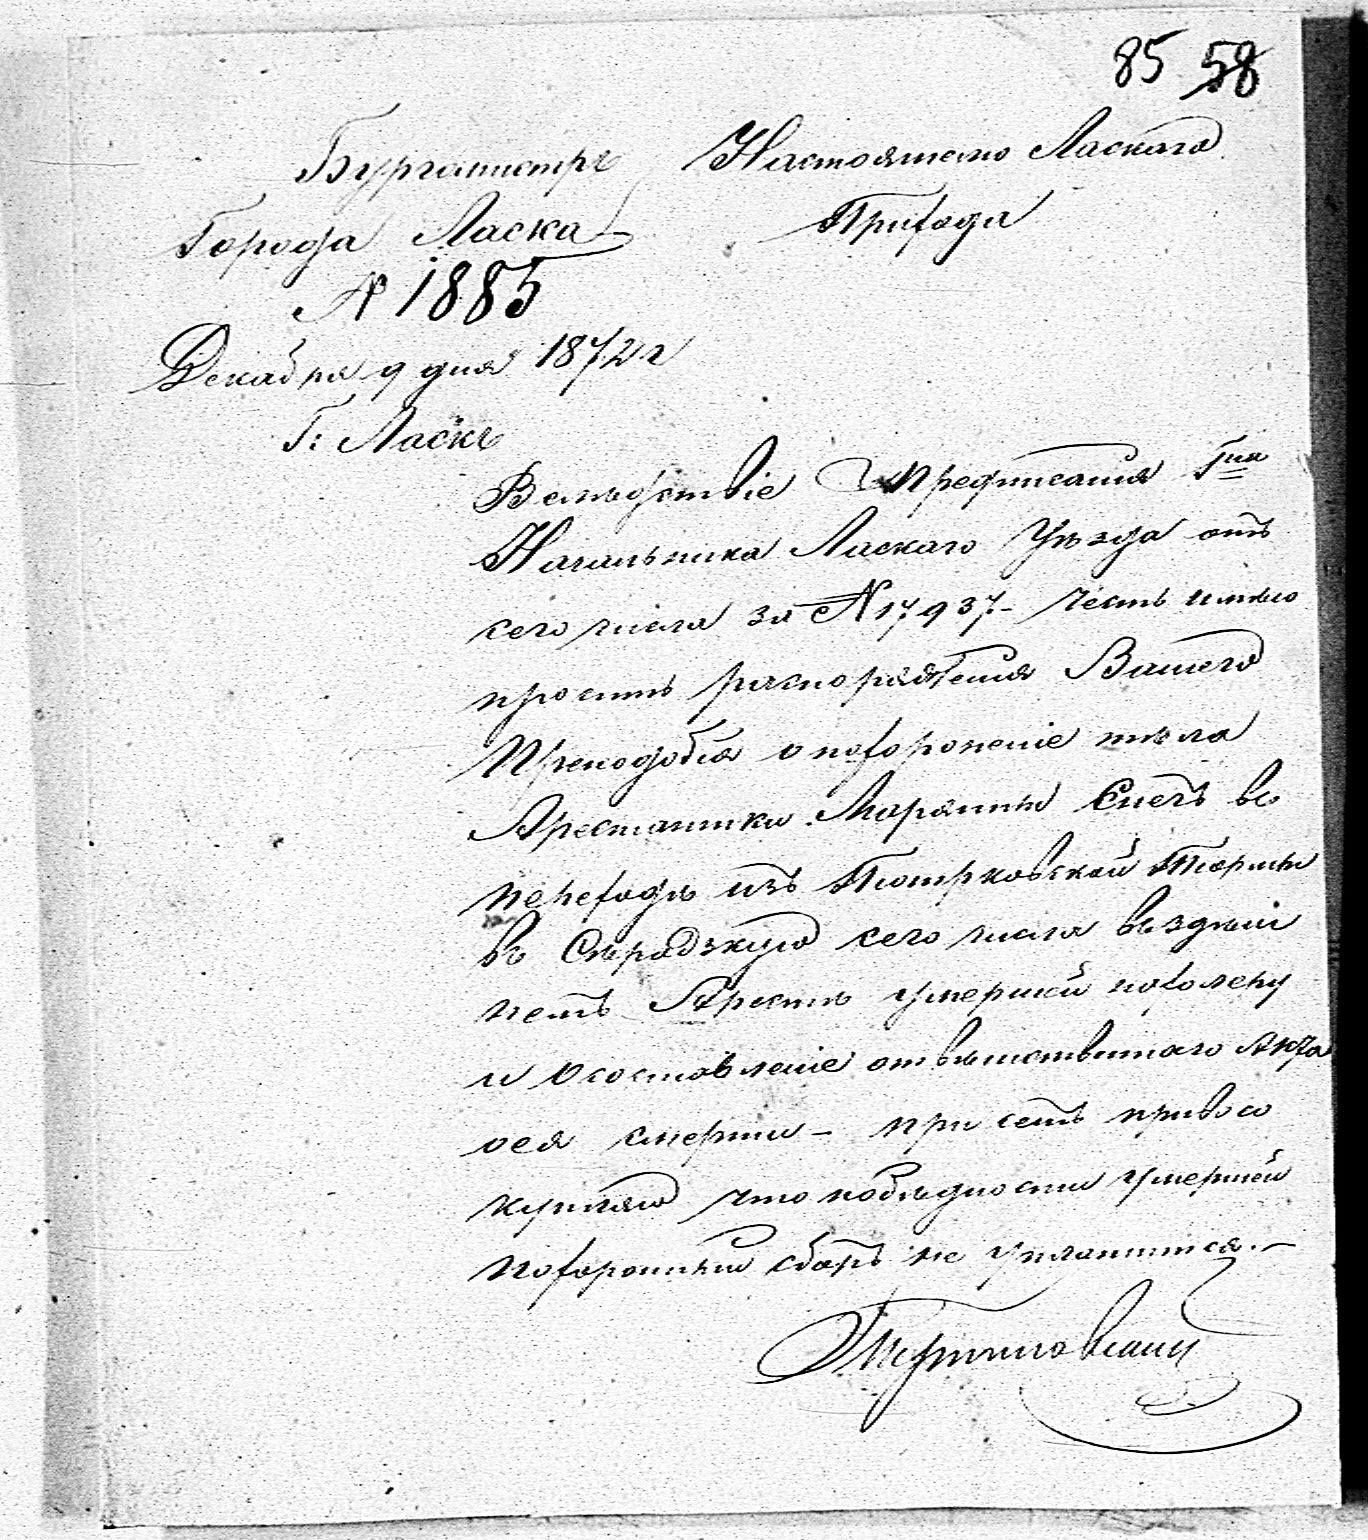 85 58
Бургомистръ
Города Ласка
№ 1885
Декабря 9 дня 1872 г
Г: Ласкъ
Настоятелю Ласкаго
Прихода
Вслѣдствіе предписанія Гна
Начальника Ласкаго Уѣзда отъ
сего числа за № 17937 – честь имѣю
просить распоряженія Вашего
Преподобія о похороненіе тѣла
Арестантки Марянны во
переходѣ изъ Піотрковской Тюрьмы
въ Сѣрадзкую сего числа въ здѣш
немъ Арестѣ умершей
и о составленіе Акта
оея смерти – при семъ приво
купляю что по бѣдности умершей
похоронный сборъ не уплатится. –